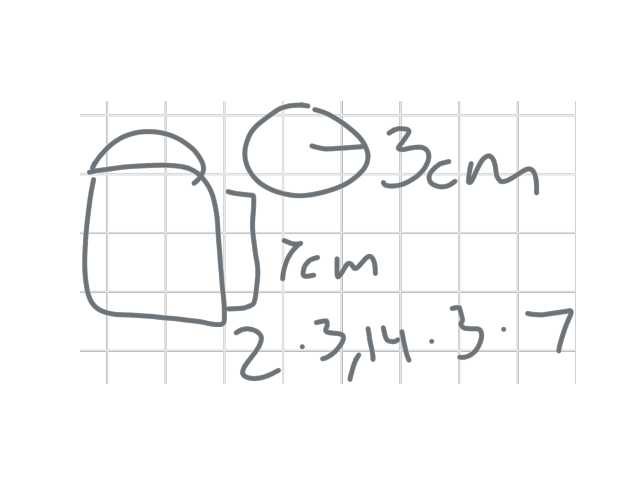 3cm
7cm
2 · 3,14 · 3 · 7